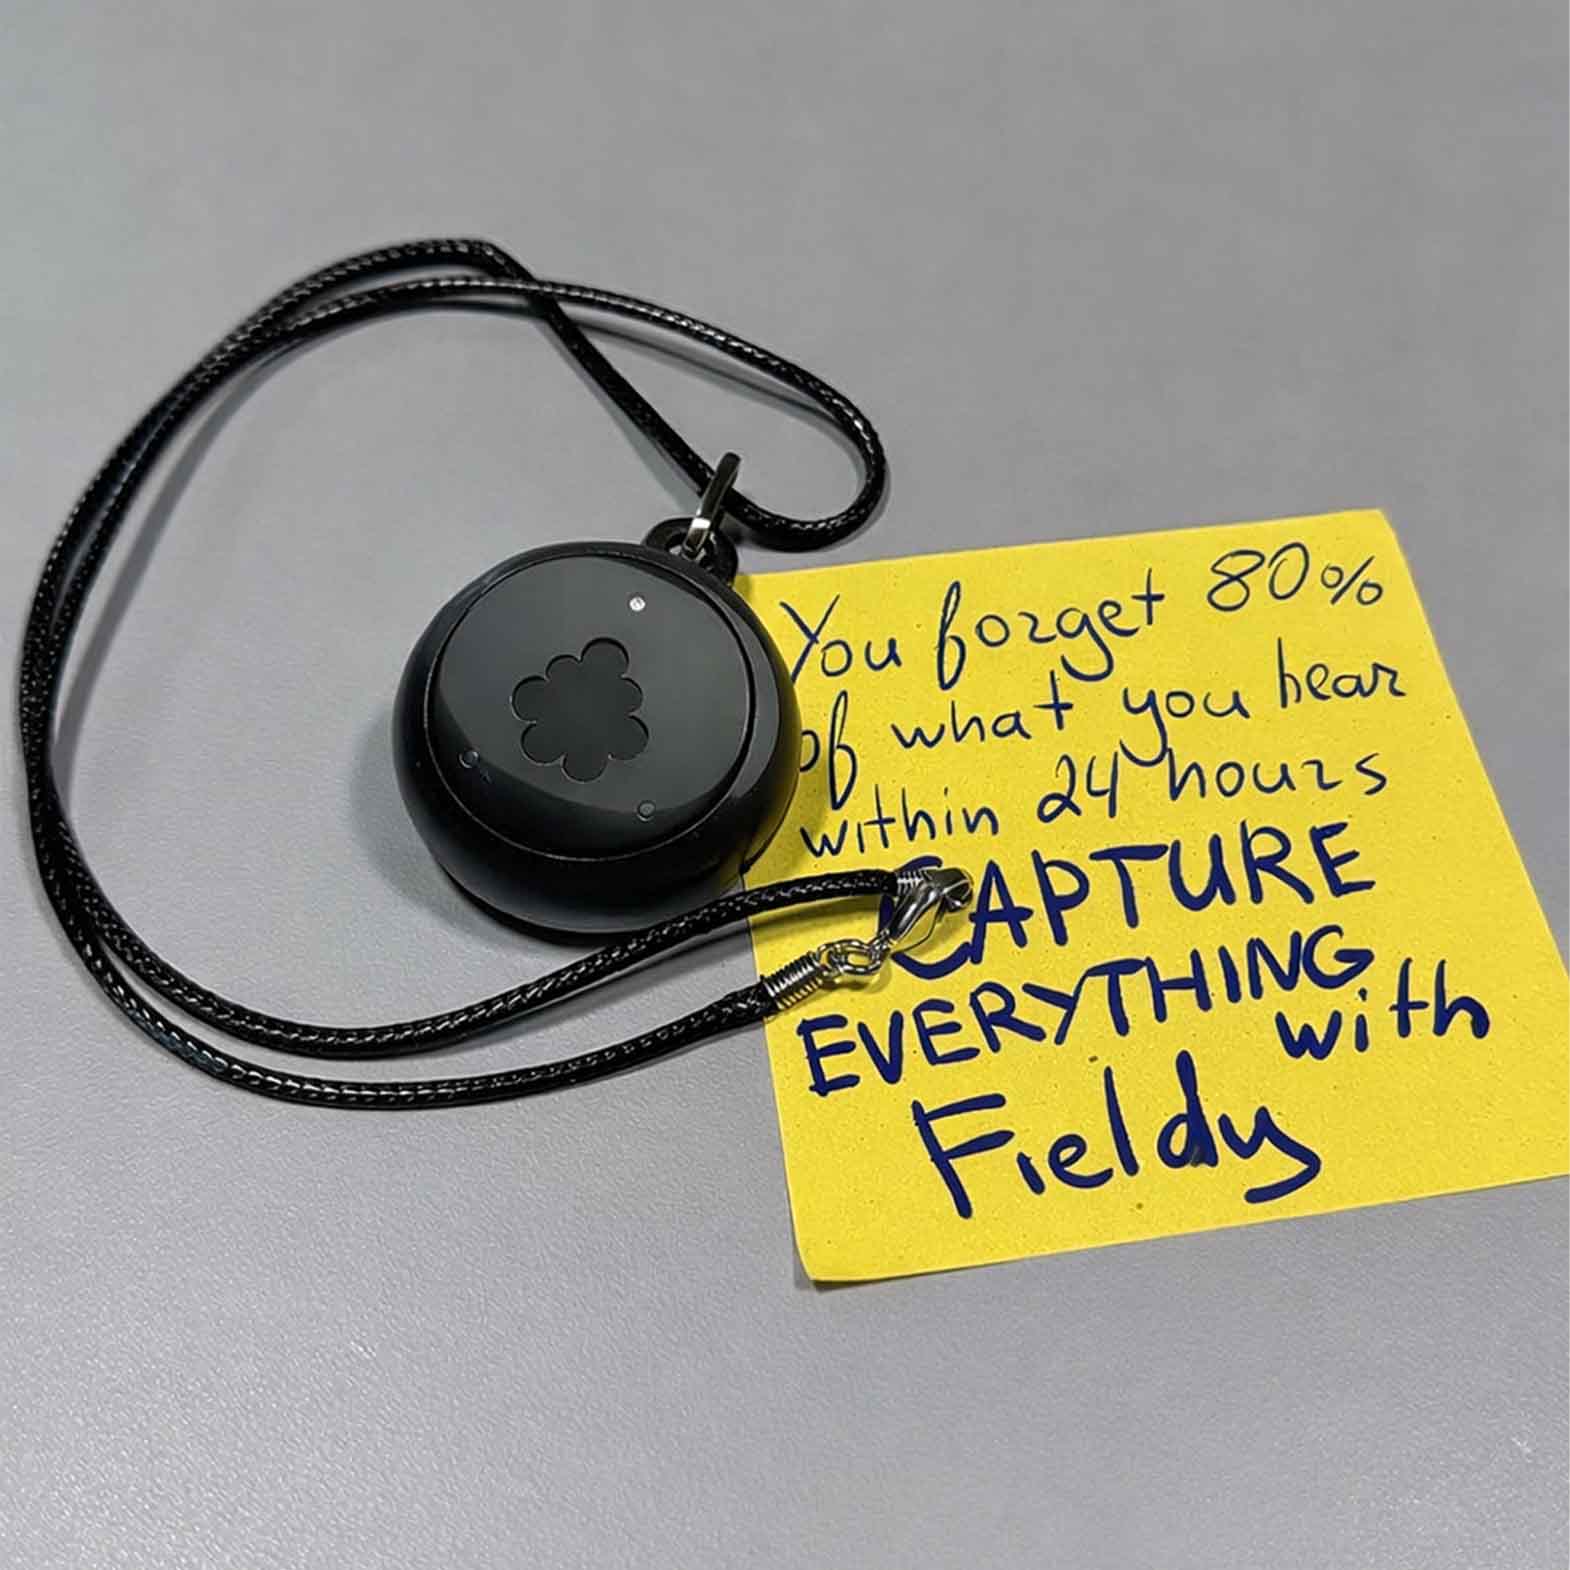 You forget 80%
of what you hear
within 24 hours
CAPTURE
EVERYTHING
with
Fieldy